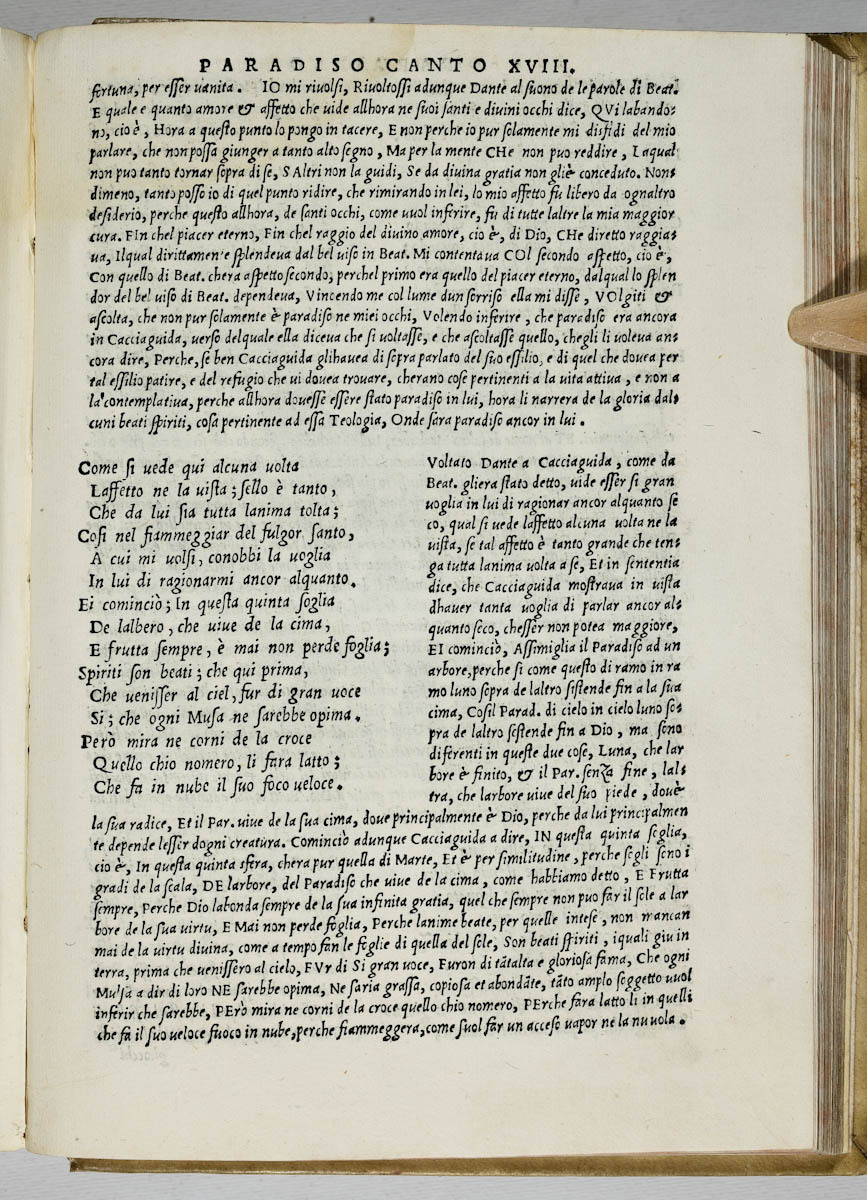 PARADISO CANTO XVIII.
fortuna, per esser vanita. IO mi riuolsi, Riuoltossi adunque Dante al suono de le parole di Beat.
E quale e quanto amore & affetto che uide allhora ne suoi santi e diuini occhi dice, QVi labando-
no, cio è, Hora a questo punto lo pongo in tacere, E non perche io pur solamente mi disfidi del mio
parlare, che non possa giunger a tanto alto segno, Ma per la mente CHe non puo reddire, Laqual
non puo tanto tornar sopra di se, S Altri non la guidi, Se da diuina gratia non gliè conceduto. Non-
dimeno, tanto posso io di quel punto ridire, che rimirando in lei, lo mio affetto fu libero da ognaltro
desiderio, perche questo allhora, de santi occhi, come uuol inferire, fu di tutte laltre la mia maggior
cura. FIn chel piacer eterno, Fin chel raggio del diuino amore, cio è, di Dio, CHe diretto raggia-
ua, Ilqual dirittamente splendeua dal bel uiso in Beat. Mi contentaua COl secondo aspetto, cio è,
Con quello di Beat. chera aspetto secondo, perchel primo era quello del piacer eterno, dalqual lo splen
dor del bel uiso di Beat. dependeua, Vincendo me col lume dun sorriso ella mi disse, VOlgiti &
ascolta, che non pur solamente è paradiso ne miei occhi, Volendo inferire, che paradiso era ancora
in Cacciaguida, uerso delquale ella diceua che si uoltasse, e che ascoltasse quello, chegli li uoleua an-
cora dire, Perche, se ben Cacciaguida glihauea di sopra parlato del suo essilio, e di quel che douea per
tal essilio patire, e del refugio che ui douea trouare, cherano cose pertinenti a la uita attiua, e non a
la contemplatiua, perche allhora douesse essere stato paradiso in lui, hora li narrera de la gloria dal-
cuni beati spiriti, cosa pertinente ad essa Teologia, Onde sara paradiso ancor in lui.
Come si uede qui alcuna uolta
Laffetto ne la uista; sello è tanto,
Che da lui sia tutta lanima tolta;
Cosi nel fiammeggiar del fulgor santo,
A cui mi uolsi, conobbi la uoglia
In lui di ragionarmi ancor alquanto.
Ei cominciò; In questa quinta soglia
De lalbero, che uiue de la cima,
E frutta sempre, è mai non perde foglia;
Spiriti son beati; che qui prima,
Che uenisser al ciel, fur di gran uoce
Si; che ogni Musa ne sarebbe opima.
Però mira ne corni de la croce
Quello chio nomero, li fara latto;
Che fa in nube il suo foco ueloce.
Voltato Dante a Cacciaguida, come da
Beat. gliera stato detto, uide esser si gran
uoglia in lui di ragionar ancor alquanto se
co, qual si uede laffetto alcuna uolta ne la
uista, se tal affetto è tanto grande che ten-
ga tutta lanima uolta a se, Et in sententia
dice, che Cacciaguida mostraua in uista
dhauer tanta uoglia di parlar ancor al-
quanto seco, chesser non potea maggiore,
EI cominciò, Assimiglia il Paradiso ad un
arbore, perche si come questo di ramo in ra
mo luno sopra de laltro sistende fin a la sua
cima, Cosil Parad. di cielo in cielo luno so-
pra de laltro sestende fin a Dio, ma sono
diferenti in queste due cose, Luna, che lar
bore è finito, & il Par. senza fine, lal-
tra, che larbore uiue del suo piede, douè
la sua radice, Et il Par. uiue de la sua cima, doue principalmente è Dio, perche da lui principalmen
te depende lesser dogni creatura. Cominciò adunque Cacciaguida a dire, IN questa quinta soglia,
cio è, In questa quinta sfera, chera pur quella di Marte, Et è per similitudine, perche segli sono i
gradi de la scala, DE larbore, del Paradiso che uiue de la cima, come habbiamo detto, E Frutta
sempre, Perche Dio labonda sempre de la sua infinita gratia, quel che sempre non puo far il sole a lar
bore de la sua uirtu, E Mai non perde foglia, Perche lanime beate, per quelle intese, non mancan
mai de la uirtu diuina, come a tempo fan le foglie di quella del sole, Son beati spiriti, iquali giu in
terra, prima che uenissero al cielo, FVr di Si gran uoce, Furon di tātalta e gloriosa fama, Che ogni
Musa a dir di loro NE sarebbe opima, Ne saria grassa, copiosa et abondāte, tāto amplo soggetto uuol
inferir che sarebbe, PErò mira ne corni de la croce quello chio nomero, PErche fara latto li in quelli
che fa il suo ueloce fuoco in nube, perche fiammeggera, come suol far un acceso uapor ne la nuuola.